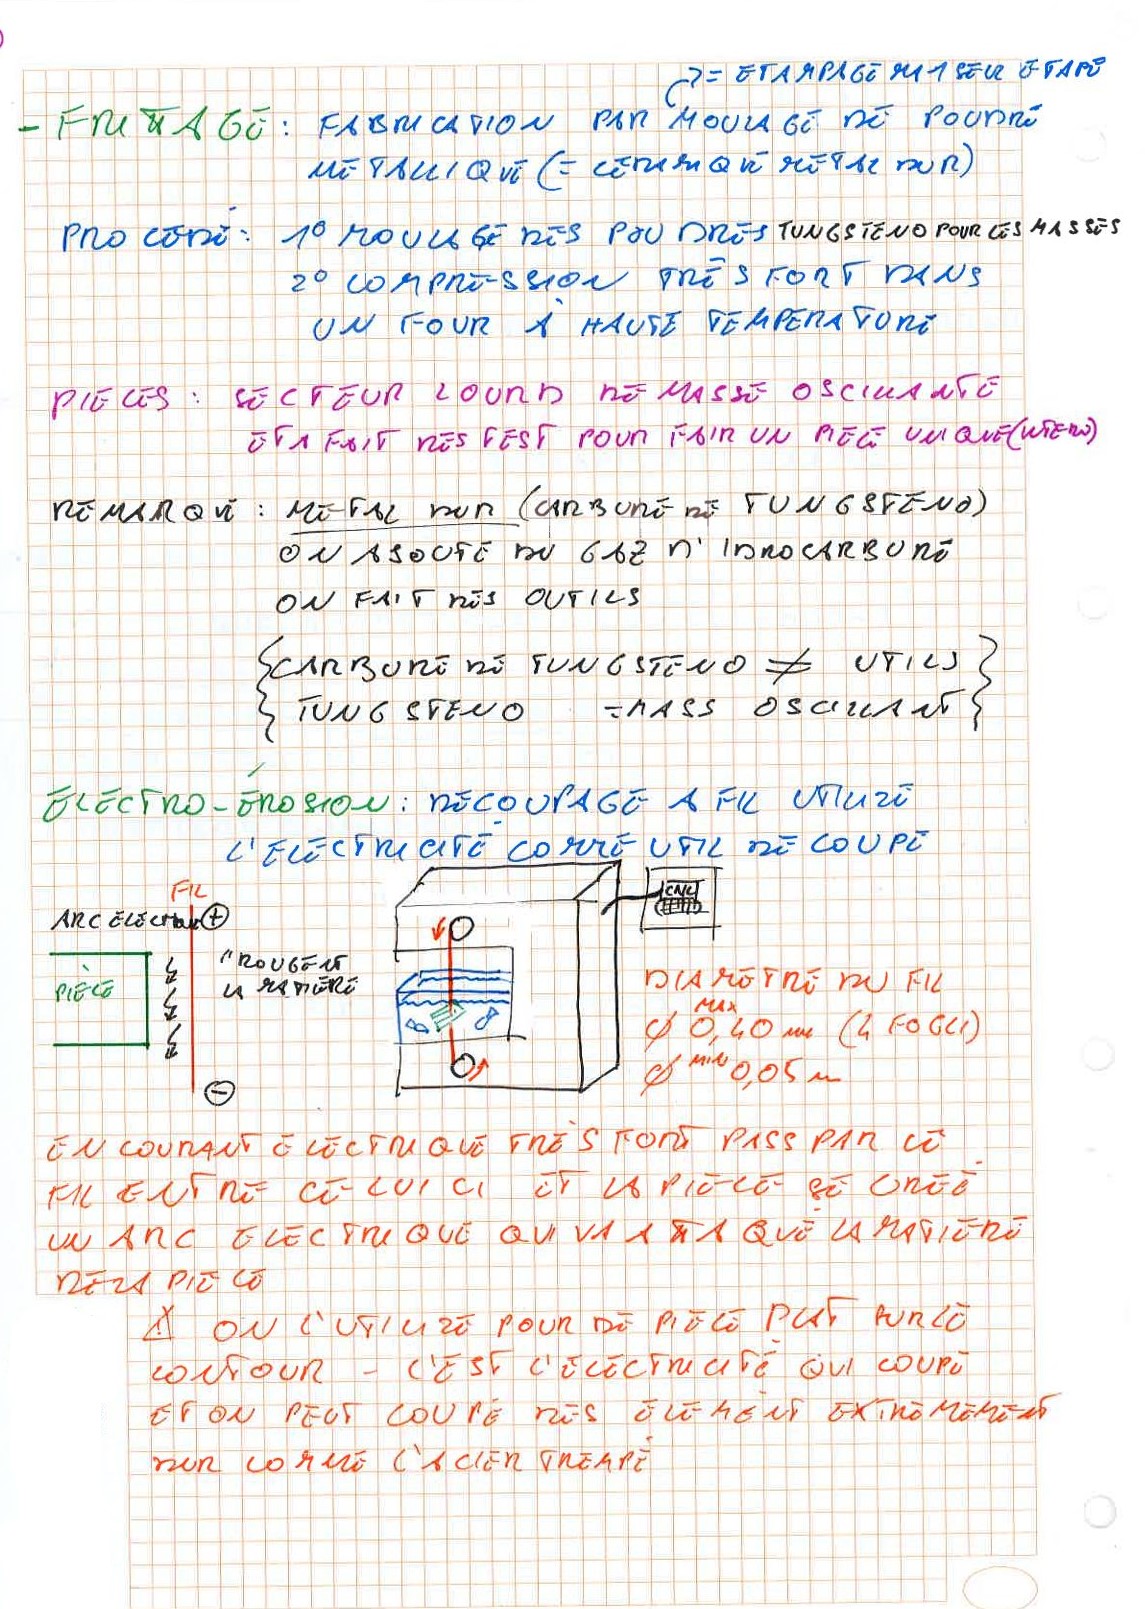 = ETAMPAGE M 1 SEUL ETAPE
- FRITTAGE : FABRICATION PAR MOULAGE DE POUDRE
METALLIQUE (= CERAMIQUE METAL DUR)
PROCEDÉ : 1° MOULAGE DES POUDRES TUNGSTENO POUR LES MASSES
2° COMPRESSION TRÈS FORT DANS
UN FOUR A HAUTE TEMPERATURE
PIECES : SECTEUR LOURD DE MASSE OSCILLANTE
ET A FAIT DES TEST POUR FAIR UN PIECE UNIQUE
REMARQUE : METAL DUR (CARBURE DE TUNGSTENO)
ON ASOUTE DU GAZ D'IDROCARBURE
ON FAIT DES OUTILS
{CARBURE DE TUNGSTENO ≠ UTILS}
{TUNGSTENO = MASS OSCILLANT}
ELECTRO-ÉROSION : DECOUPAGE A FIL UTILIZE
L'ELECTRICITÉ COMME UTIL DE COUPE
FIL
ARC ELECTR +
PIÈCE
ROUGENT
LA MATIERE
-
CNC
DIAMETRE DU FIL
MAX
φ 0,40 mm (4 FOGLI)
φ MIN 0,05 m
EN COURANT ELECTRIQUE TRÈS FORT PASS PAR LE
FIL ENTRE CE-LUI CI ET LA PIECE SE CRÉE
UN ARC ELECTRIQUE QUI VA ATTAQUE LA MATIERE
DE LA PIECE
⚠ ON L'UTILIZE POUR DE PIECE PLAT SUR LE
CONTOUR - C'EST L'ELECTRICITÉ QUI COUPE
ET ON PEUT COUPE DES ELEMENT EXTREMEMENT
DUR COMME L'ACIER TREMPÉ